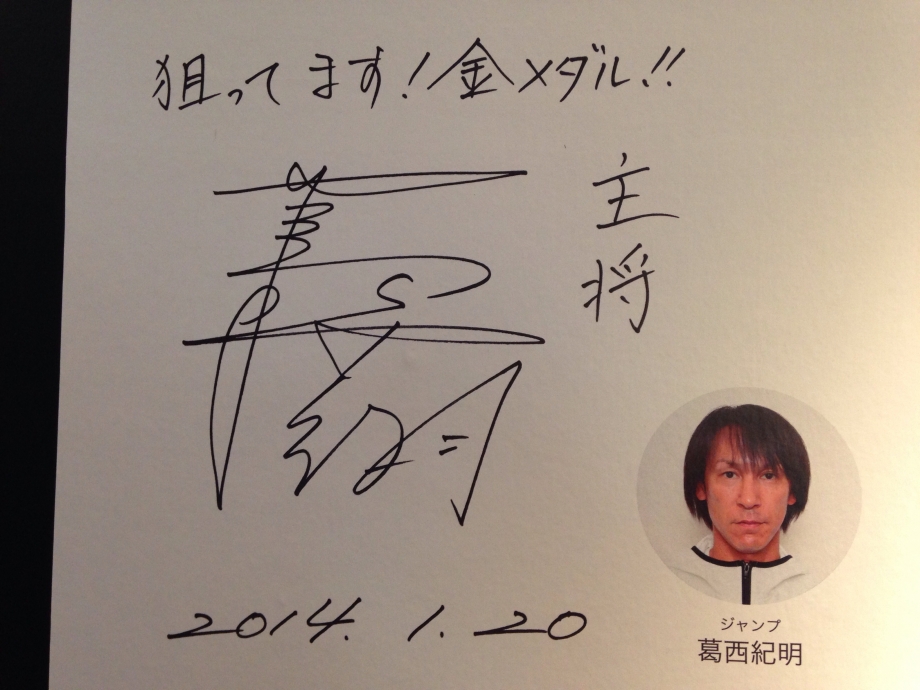 狙ってます!金メダル!!
主将
2014.1.20
ジャンプ
葛西紀明